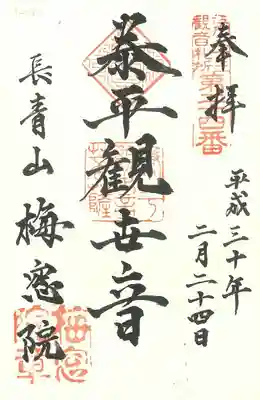 奉拝
平成三十年
二月二十四日
泰平観世音
長青山
梅窓院
観音札所
第二十四番
梅窓
院章